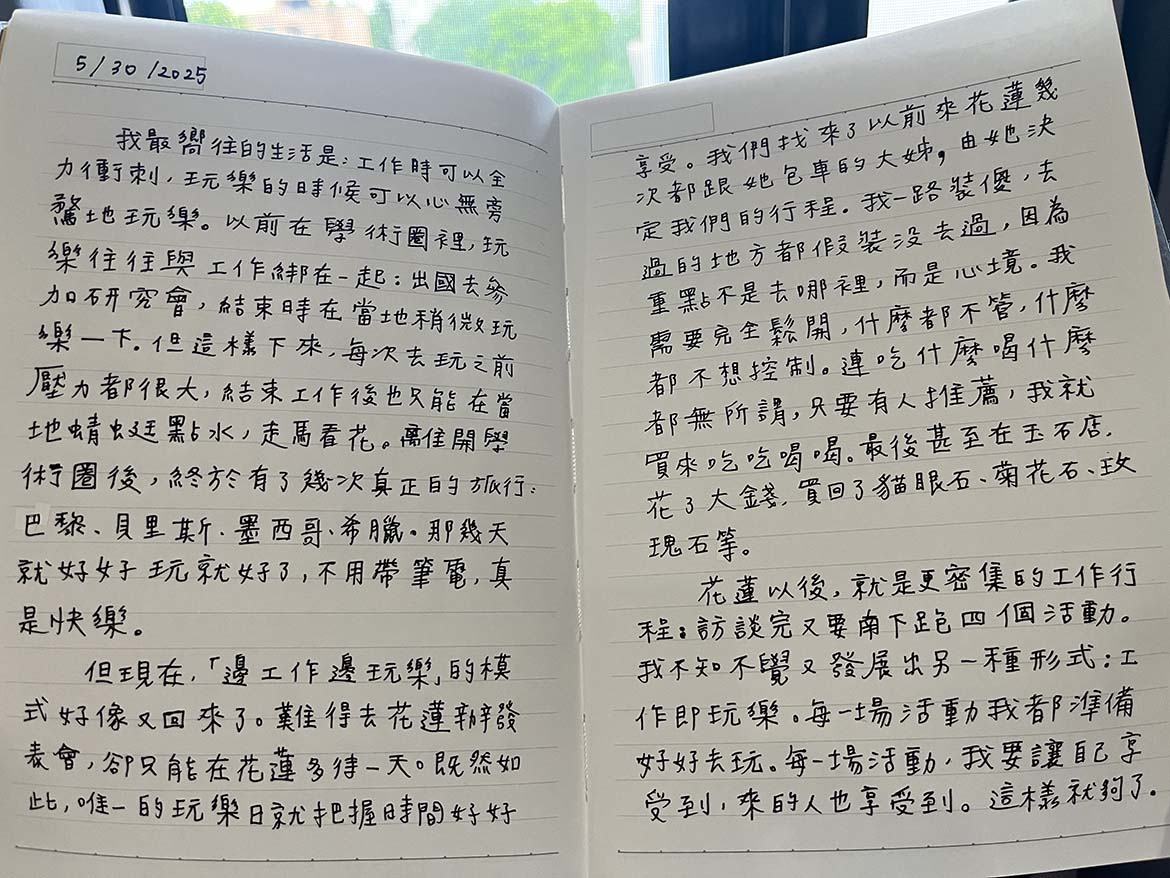 5/30/2025
我最嚮往的生活是：工作時可以全
力衝刺，玩樂的時候可以心無旁
騖地玩樂。以前在學術圈裡，玩
樂往往與工作綁在一起：出國去參
加研究會，結束時在當地稍微玩
樂一下。但這樣下來，每次去玩之前
壓力都很大，結束工作後也只能在當
地蜻蜓點水，走馬看花。離開學
術圈後，終於有了幾次真正的旅行：
巴黎、貝里斯、墨西哥、希臘。那幾天
就好好玩就好了，不用帶筆電，真
是快樂。
但現在，「邊工作邊玩樂」的模
式好像又回來了。難得去花蓮辦發
表會，卻只能在花蓮多待一天。既然如
此，唯一的玩樂日就把握時間好好
享受。我們找來了以前來花蓮幾
次都跟她包車的大姊，由她決
定我們的行程。我一路裝傻，去
過的地方都假裝沒去過，因為
重點不是去哪裡，而是心境。我
需要完全鬆開，什麼都不管，什麼
都不想控制。連吃什麼喝什麼
都無所謂，只要有人推薦，我就
買來吃吃喝喝。最後甚至在玉石店
花了大錢，買回了貓眼石、菊花石、玫
瑰石等。
花蓮以後，就是更密集的工作行
程：訪談完又要南下跑四個活動。
我不知不覺又發展出另一種形式：工
作即玩樂。每一場活動我都準備
好好去玩。每一場活動，我要讓自己享
受到，來的人也享受到。這樣就夠了。